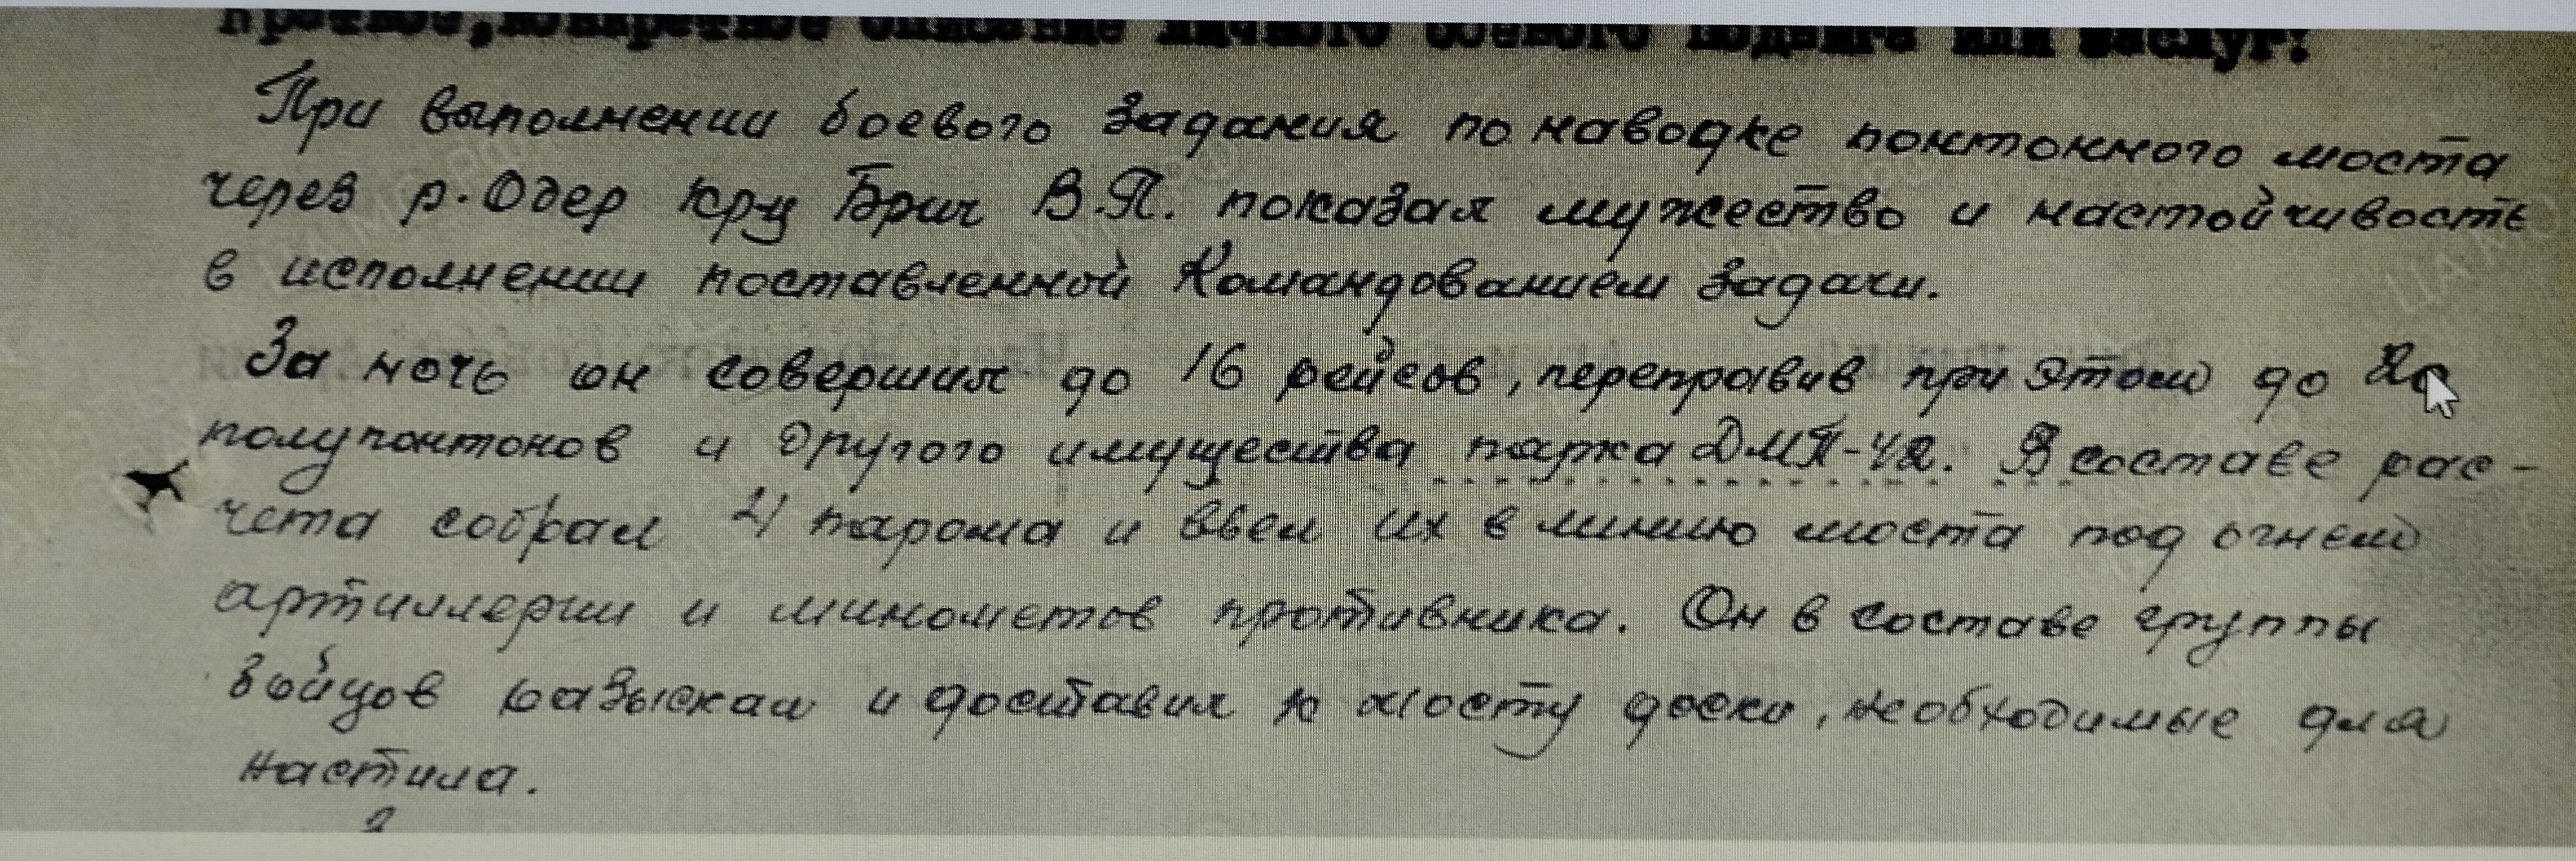 Краткое, конкретное описание личного боевого подвига или заслуг:
При выполнении боевого задания по наводке понтонного моста
через р. Одер кр-ц Брич В.П. показал мужество и настойчивость
в исполнении поставленной Командованием задачи.
За ночь он совершил до 16 рейсов, переправив при этом до 20
полупонтонов и другого имущества парка ДМП-42. В составе рас-
чета собрал 4 парома и ввел их в линию моста под огнем
артиллерии и минометов противника. Он в составе группы
бойцов разыскал и доставил к мосту доски, необходимые для
настила.